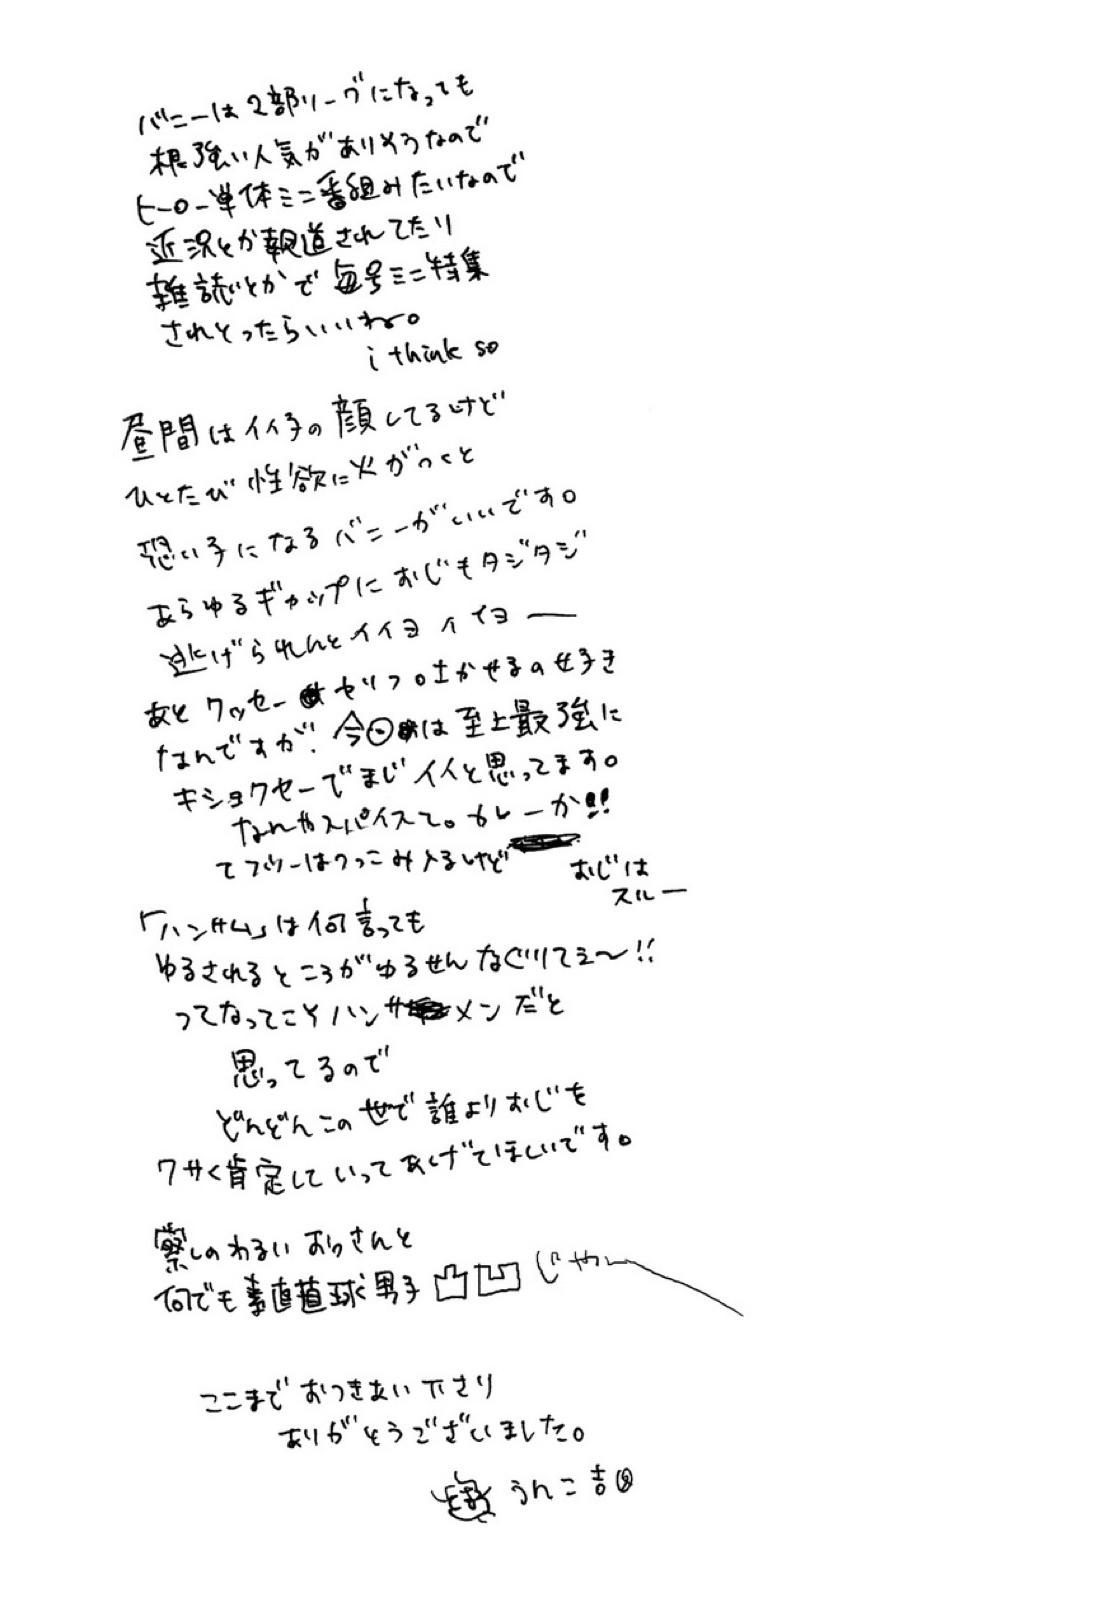 バニーは2部リーグになっても
根強い人気がありそうなので
ヒーロー単体ミニ番組みたいなので
近況とか報道されてたり
雑誌とかで毎号ミニ特集
されとったらいいね。
i think so
昼間はイイ子の顔してるけど
ひとたび性欲に火がつくと
恐い子になるバニーがいいです。
あらゆるギャップにおじもタジタジ
逃げられんとイイヨイイヨー
あとクッセーセリフ吐かせるの好き
なんですが、今回は至上最強に
キショクセーでまじイイと思ってます。
なんやスパイスて。カレーか!!
てフツーはつっこみ入るけど
おじは
スルー
「ハンサム」は何言っても
ゆるされるところがゆるせんなぐりてェ〜!!
ってなってこそハンサメンだと
思ってるので
どんどんこの世で誰よりおじを
クサく肯定していってあげてほしいです。
察しのわるいおっさんと
何でも素直直球男子凸凹じゃん
ここまでおつきあい下さり
ありがとうございました。
うんこ吉田